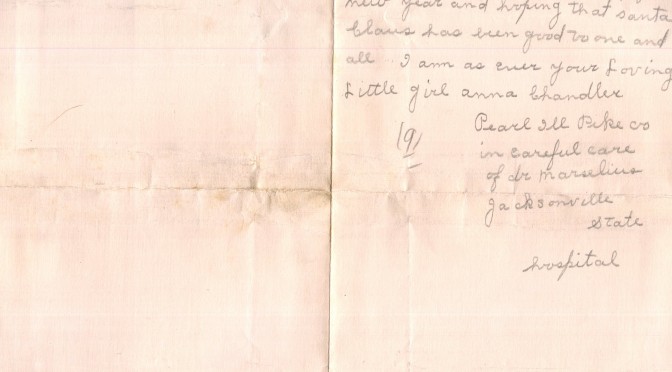 new year and hoping that santa
Claus has been good to one and
all I am as ever your Loving
Little girl anna Chandler
Pearl Ill Pike co
19
in careful care
of dr marselius
Jacksonville
State
hospital